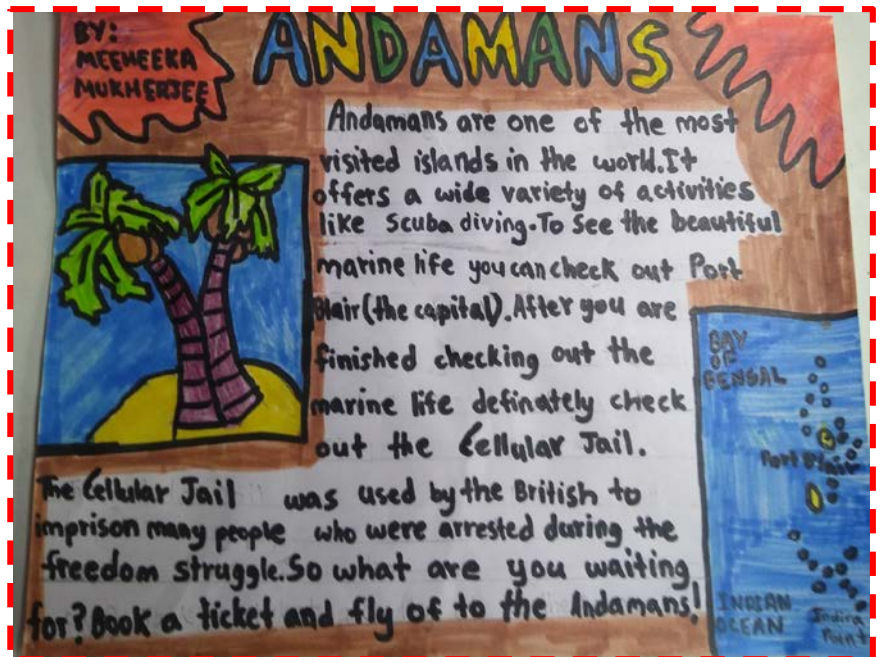 BY:
MEEHEEKA
MUKHERJEE
ANDAMANS
Andamans are one of the most
visited islands in the world.It
offers a wide variety of activities
like Scuba diving.To See the beautiful
marine life you can check out Port
Blair(the capital).After you are
finished checking out the
marine life definately check
out the Cellular Jail.
The Cellular Jail was used by the British to
imprison many people who were arrested during the
freedom struggle.So what are you waiting
for? Book a ticket and fly of to the Andamans!
BAY
OF
BENGAL
Port Blair
INDIAN
OCEAN
Indira
Point